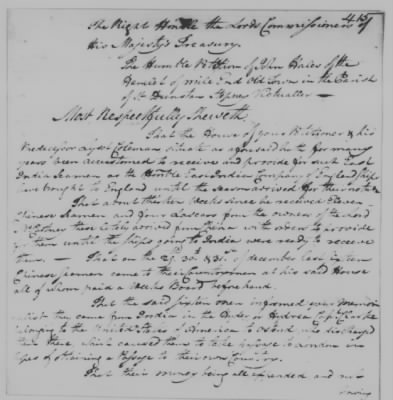 415
The Right Hon:ble the Lords Commissioners of
His Majesty's Treasury.
The Humble Petition of John Hales of the
Hamlet of Mile End Old Town in the Parish
of St Dunstan Stepney Victualler —
Most Respectfully Sheweth
That the House of your Petitioner & his
Predecessor Coleman situate as aforesaid hath for many
years been accustomed to receive and provide for such East
India Seamen as the Honble East India Company's English Ships
have brought to England until the season arrived for their
That about thirteen Weeks since he received Eleven
Chinese Seamen and Four Lascars from the owners of the Lord
McCartney then lately arrived from China with orders to provide
for them until the Ships going to India were ready to receive
them. — That on the 29. 30th & 31st of December last sixteen
Chinese seamen came to their Countrymen at his said House
all of whom paid a Weeks Board beforehand.
That the said sixteen men informed your
that they came from India in the
belonging to the United States of America to Ostend who discharged
them there, which caused them to take passage to London in
hopes of obtaining a Passage to their own Country.
That their money being all expended and
having